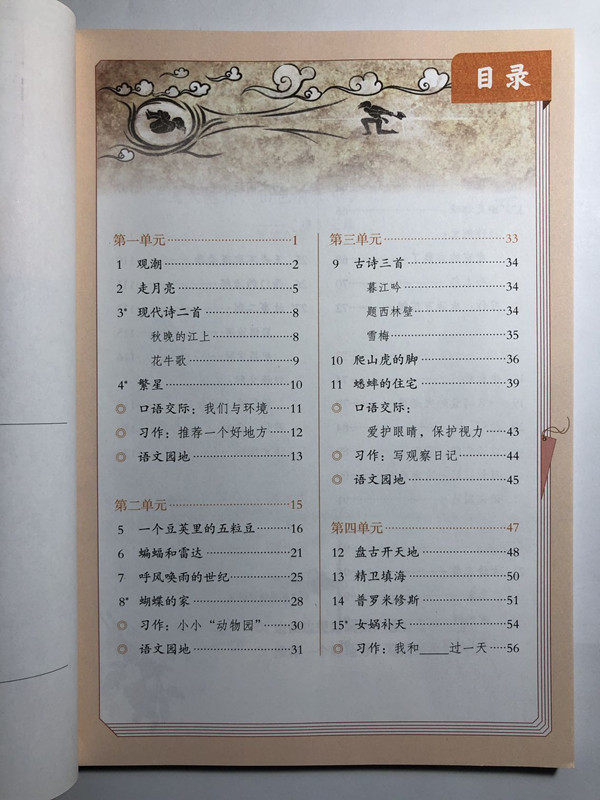 目录
第一单元……1
1 观潮……2
2 走月亮……5
3* 现代诗二首……8
秋晚的江上……8
花牛歌……9
4* 繁星……10
◎ 口语交际：我们与环境……11
◎ 习作：推荐一个好地方……12
◎ 语文园地……13
第二单元……15
5 一个豆荚里的五粒豆……16
6 蝙蝠和雷达……21
7 呼风唤雨的世纪……25
8* 蝴蝶的家……28
◎ 习作：小小“动物园”……30
◎ 语文园地……31
第三单元……33
9 古诗三首……34
暮江吟……34
题西林壁……34
雪梅……35
10 爬山虎的脚……36
11 蟋蟀的住宅……39
◎ 口语交际：
爱护眼睛，保护视力……43
◎ 习作：写观察日记……44
◎ 语文园地……45
第四单元……47
12 盘古开天地……48
13 精卫填海……50
14 普罗米修斯……51
15* 女娲补天……54
◎ 习作：我和____过一天……56